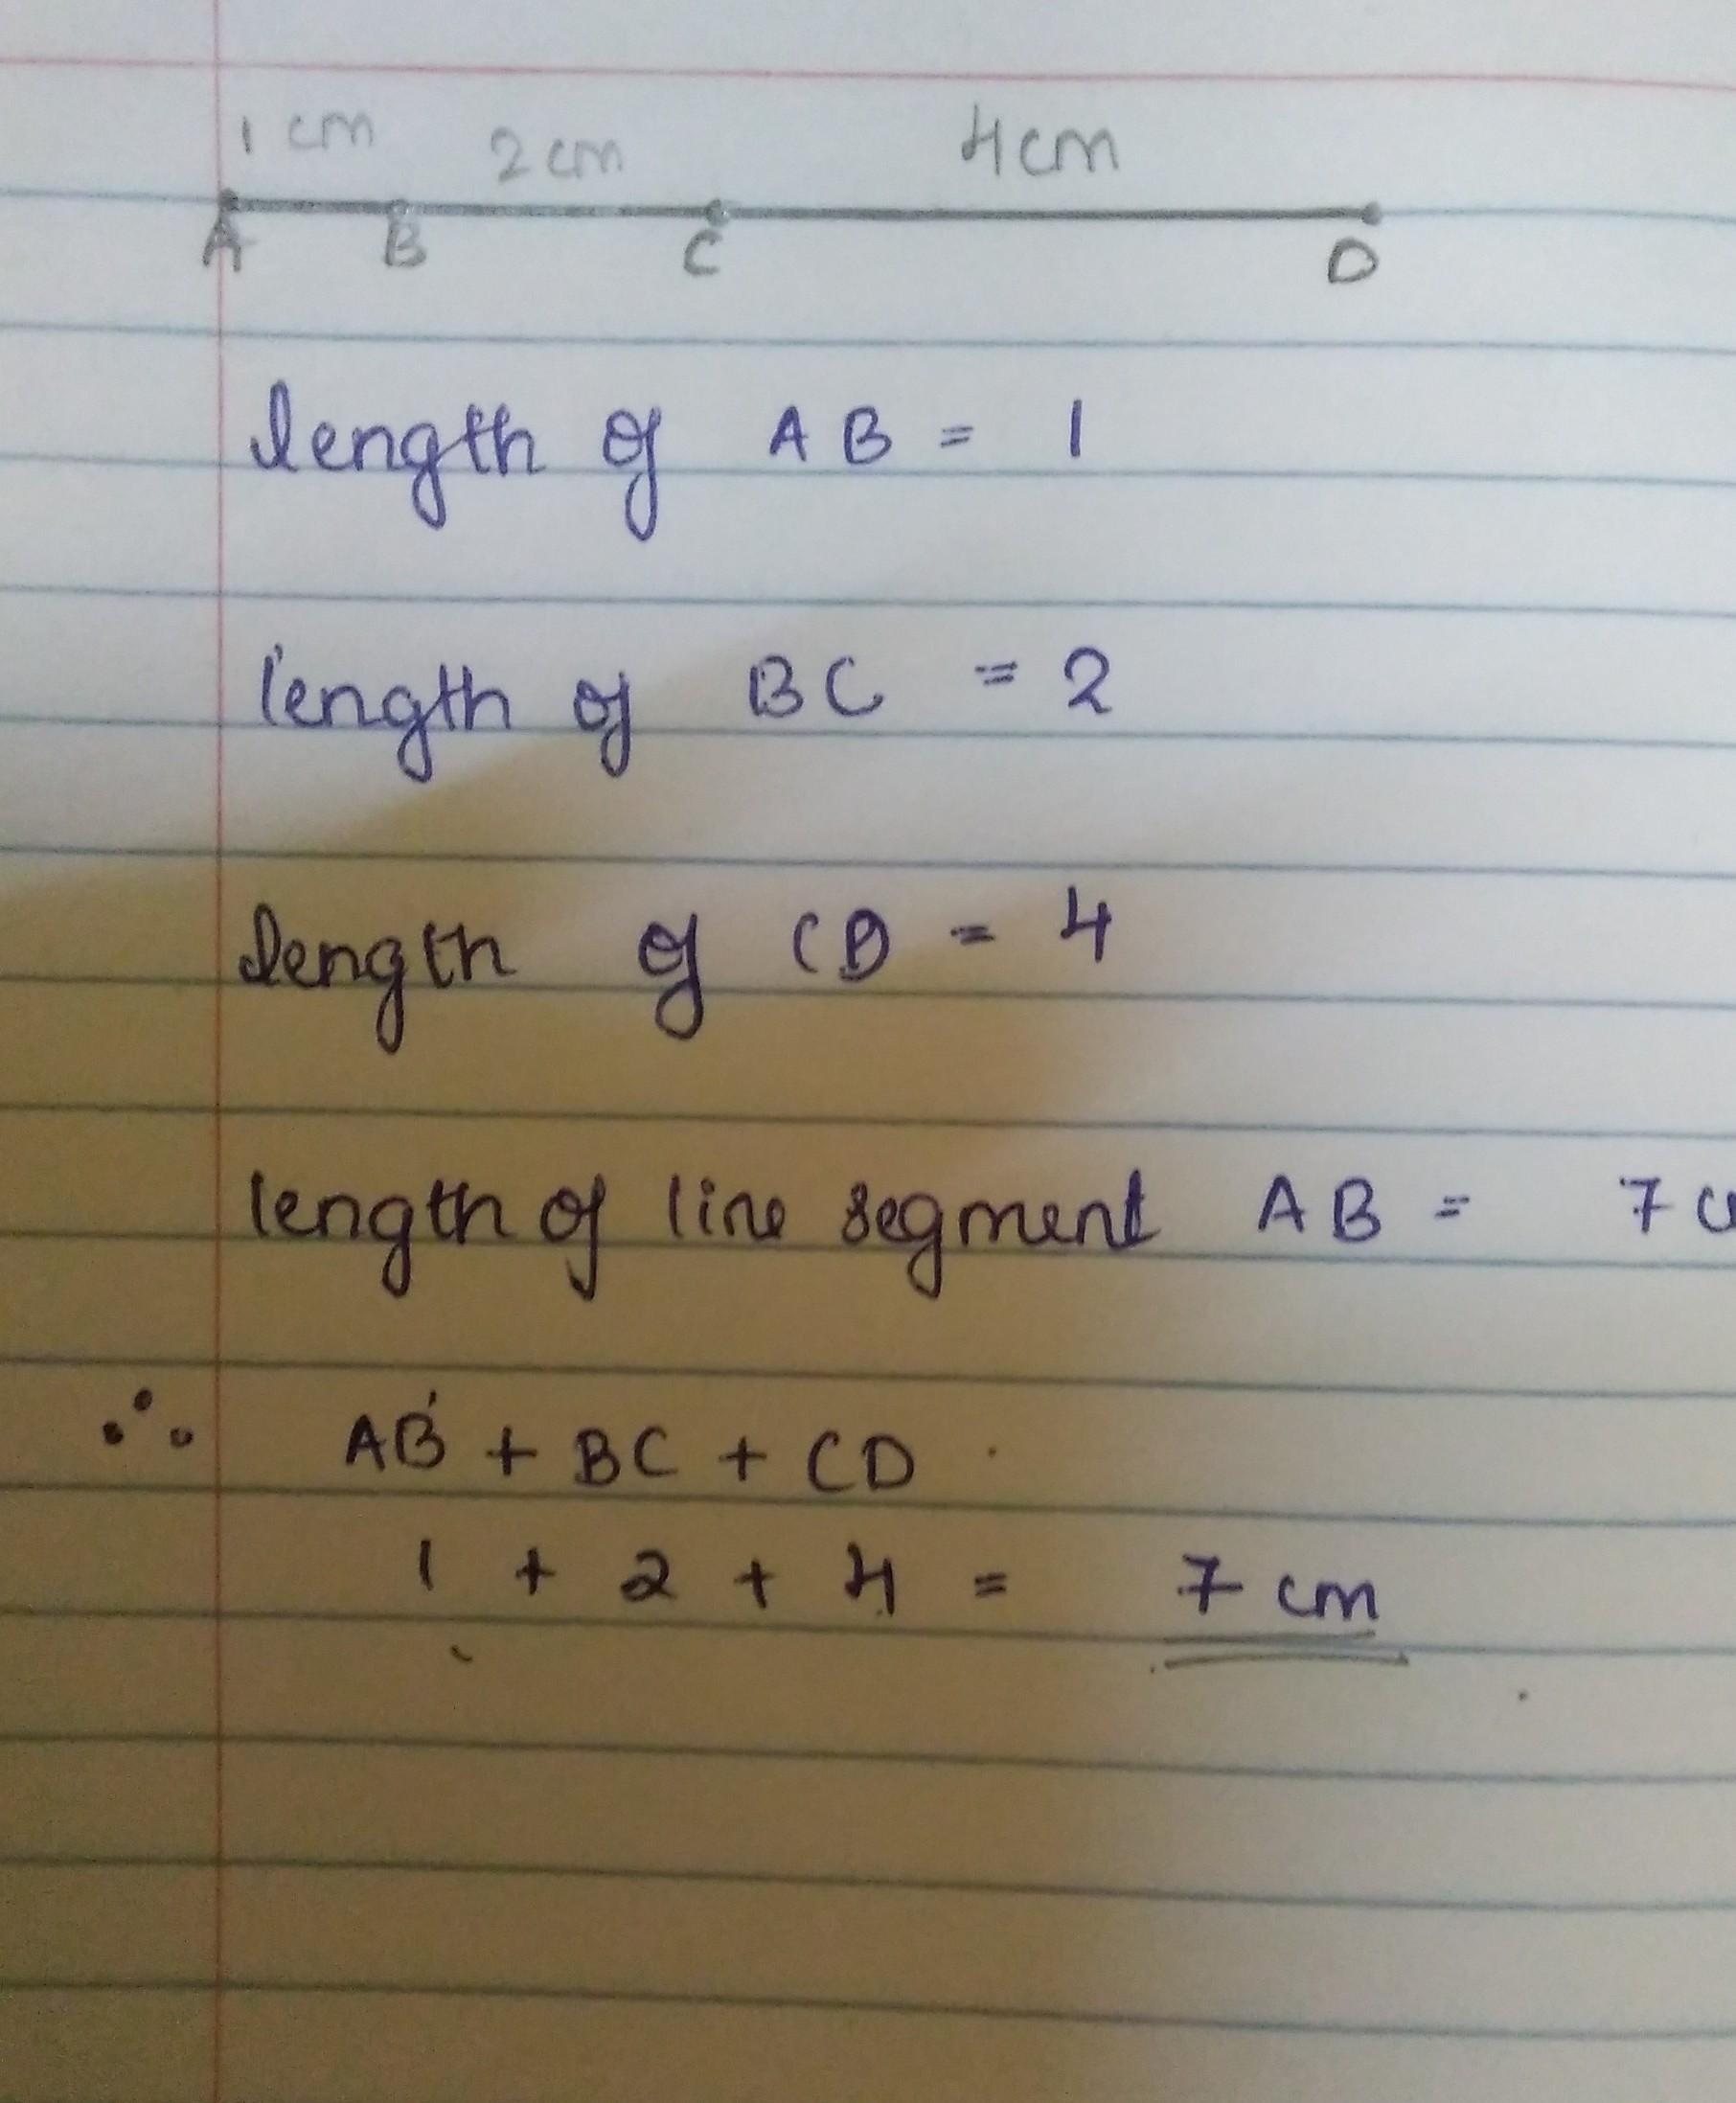 1 cm 2 cm 4 cm
A B C D
length of AB = 1
length of BC = 2
length of CD = 4
length of line segment AB = 7 c
∴ AB + BC + CD
1 + 2 + 4 = 7 cm